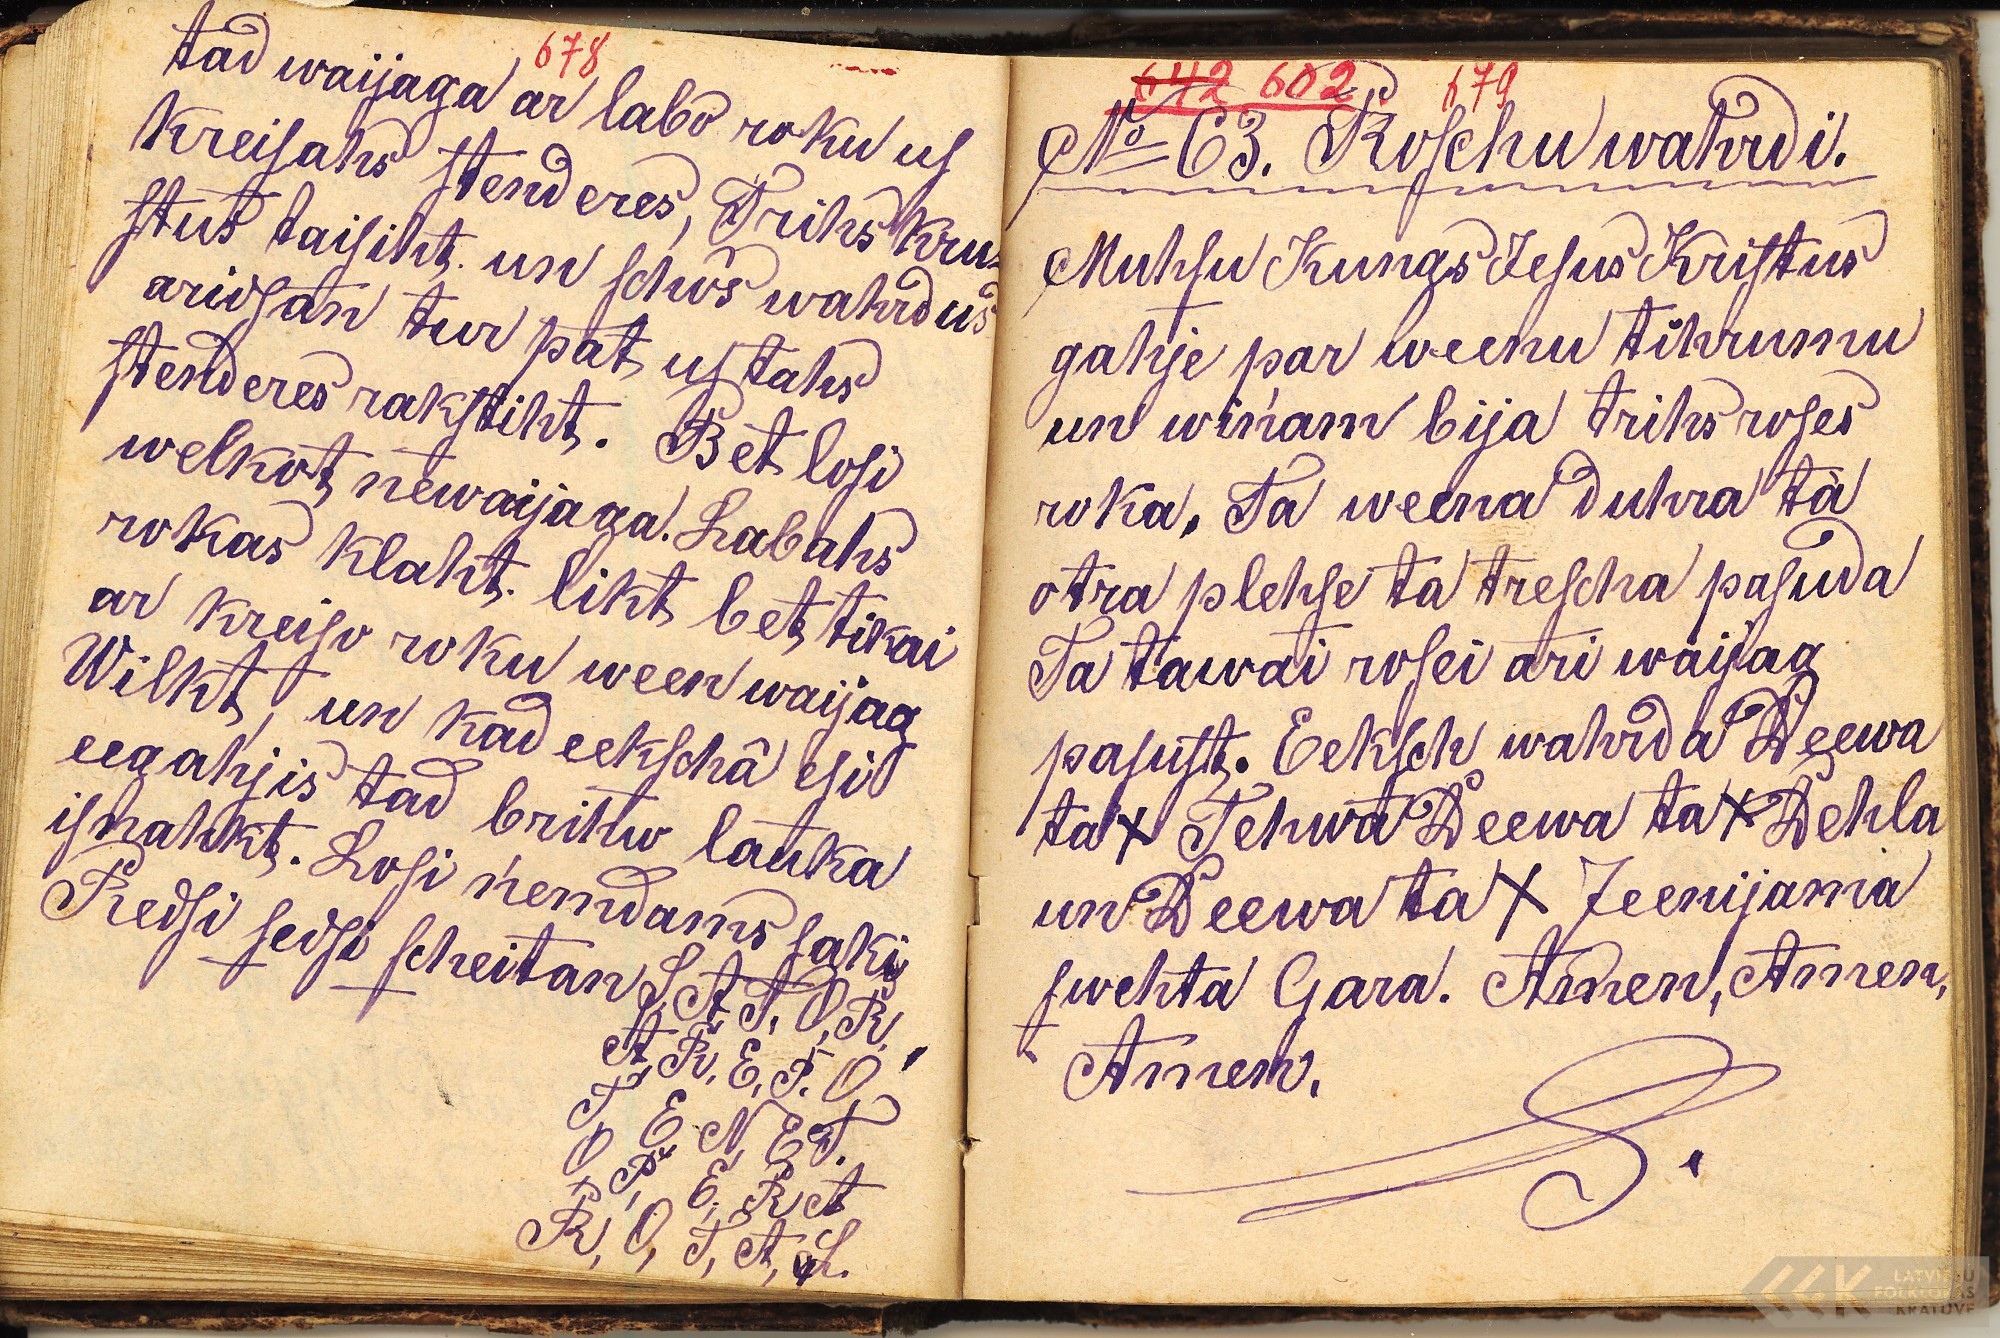 678
tad waijaga ar labo roku us
kreisahs stenderes, Trihs kru-
stus taisiht. un schôs wahrdus
aridsan tur pat us tahs
stenderes rakstiht. Bet losi
welkot newaijaga. Labahs
rokas klaht. likt bet tikai
ar kreiso roku ween waijag
Wilkt, un kad eekschâ esi
eegahjis tad brihw lauka
isnahkt. Losi ńemdams saki
Redsi sedsi scheitan S, A, T, O, R,
A, R, E, P, O,
T, E, N, E, T.
O, P, E, R, A
R, O, T, A, S.
642 602 679
No 63. Roschu wahrdi.
Muhsu Kungs Jesus Kristus
gahje par weenu tihrumu
un wińam bija trihs roses
roka. Ta weena duhra ta
otra plehse ta trescha pasuda
Ta tawai rosei ari waijag
pasust. Eeksch wahrda Deewa
ta X Tehwa Deewa ta X Dehla
un Deewa ta X Zeenijama
swehta Gara. Amen, Amen,
Amen.
LATVIEŠU
FOLKLORAS
KRĀTUVE